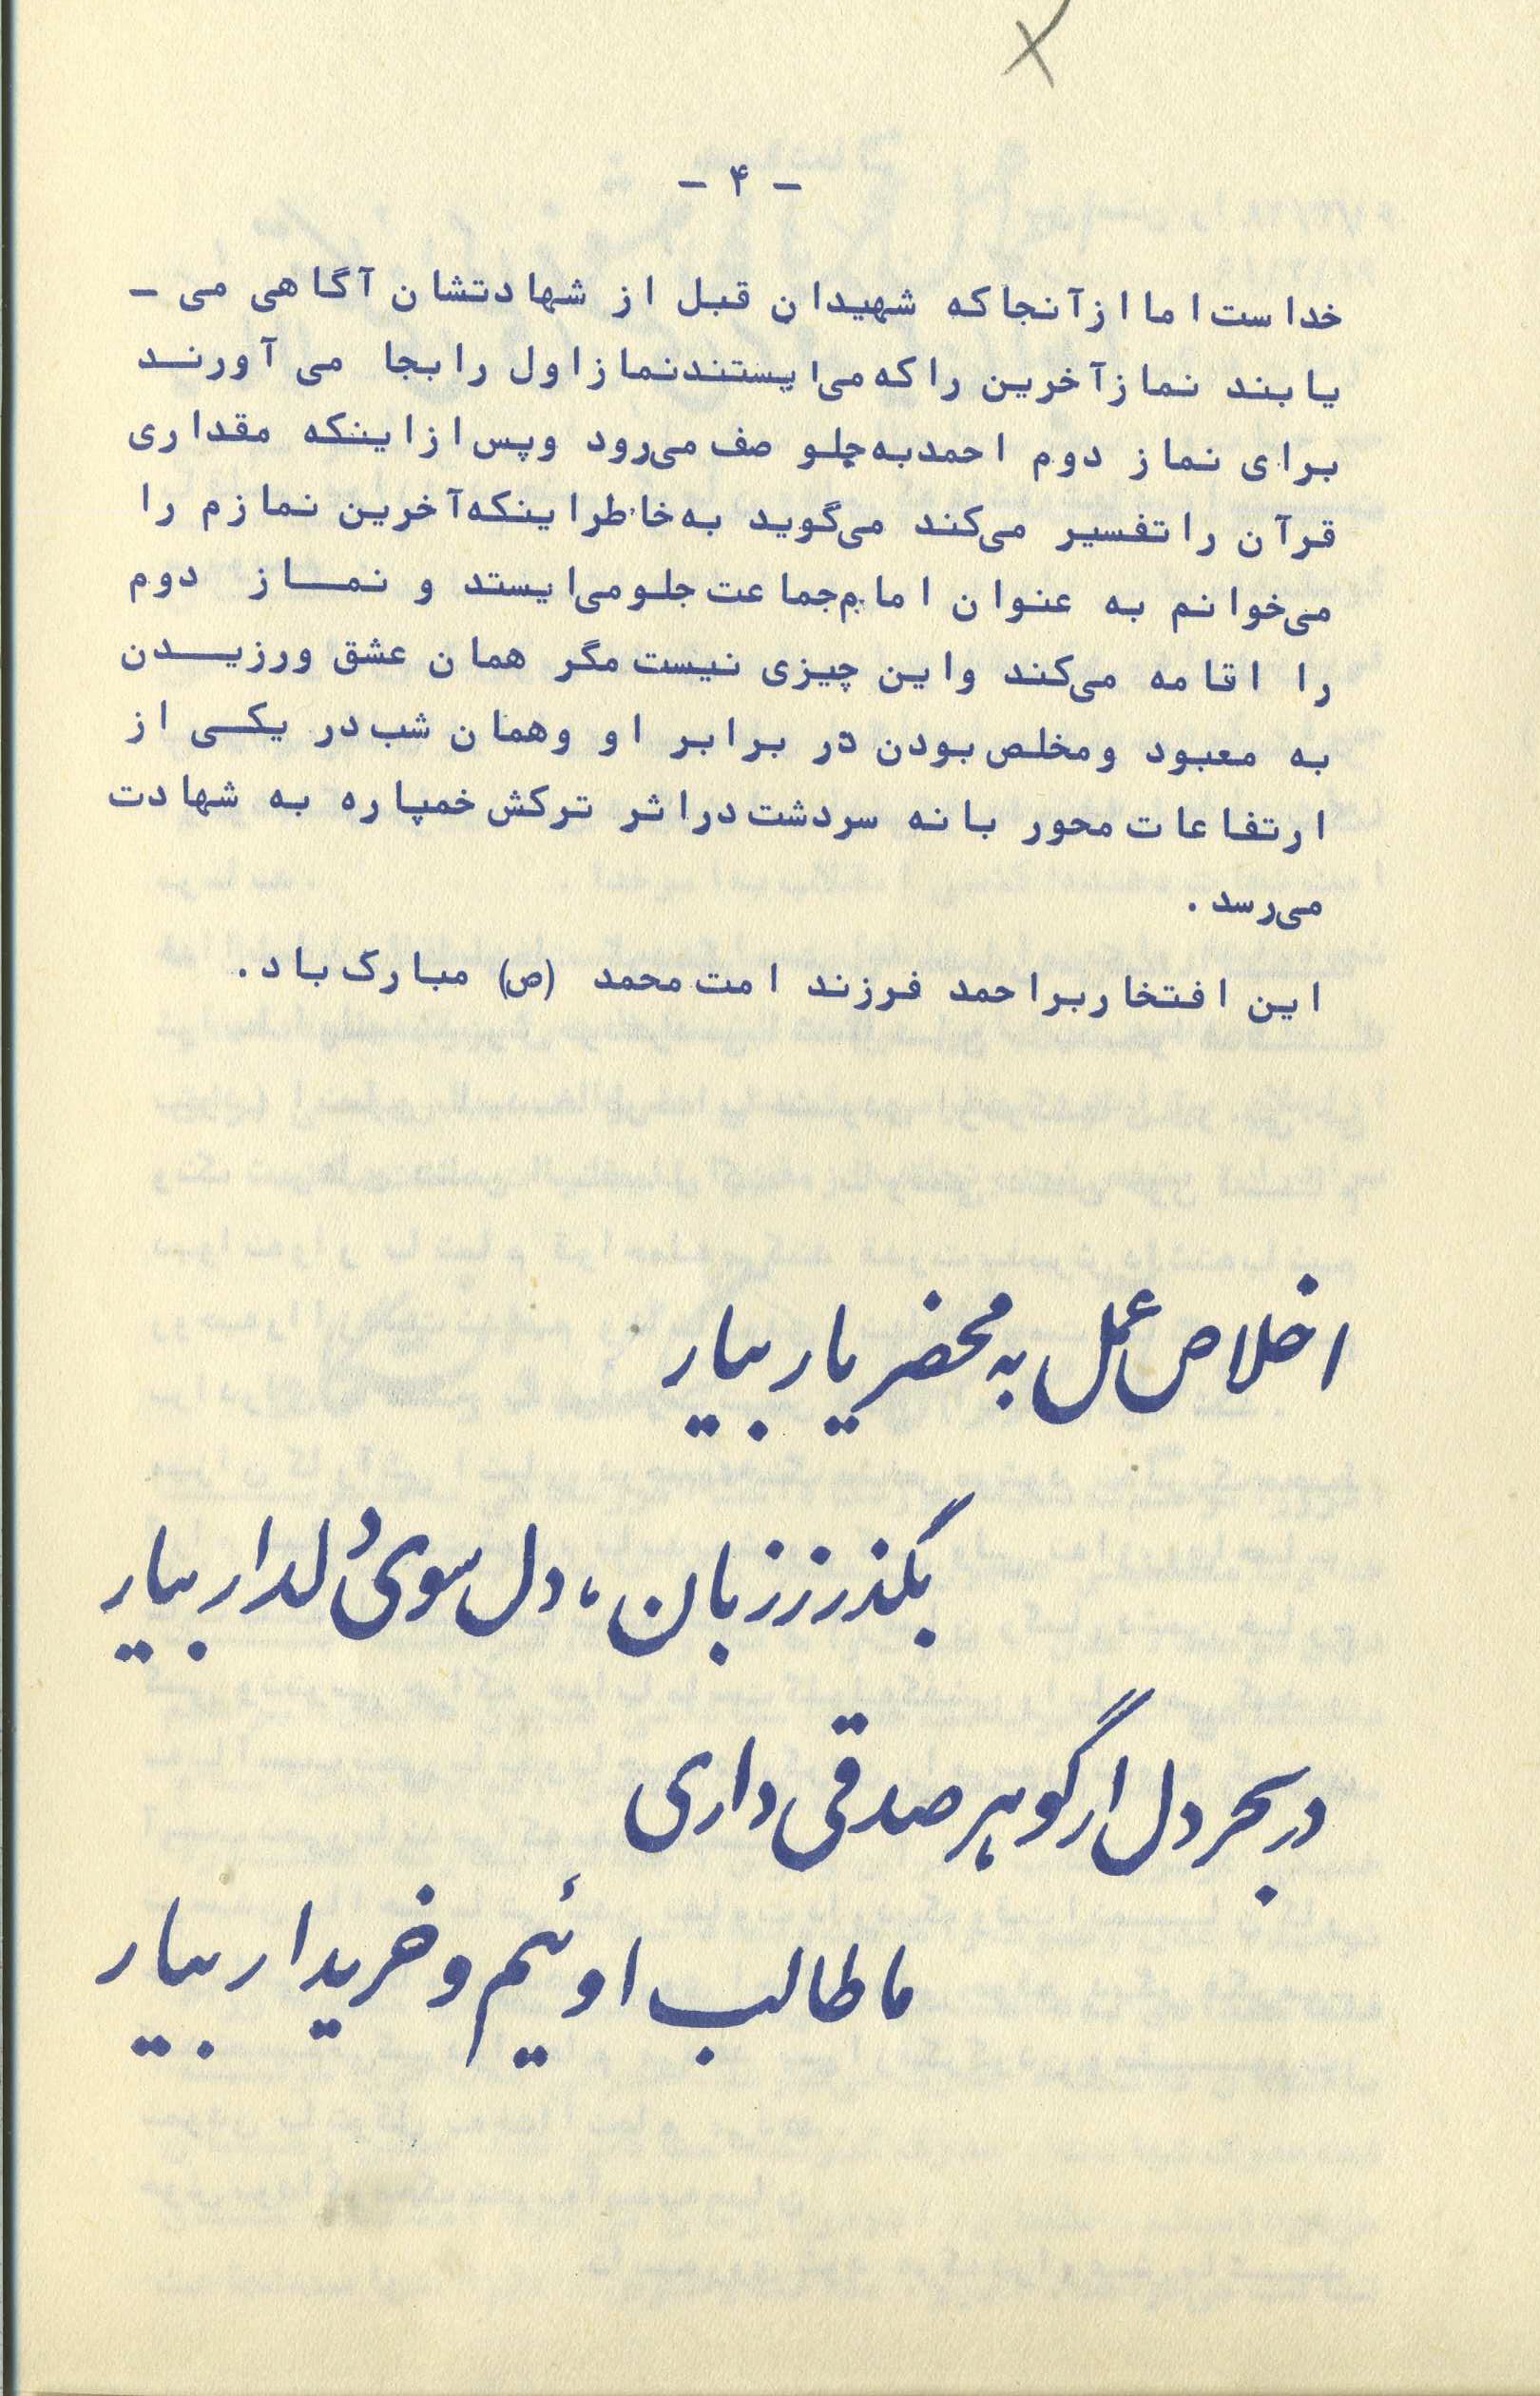 - ۴ -
خداست اما از آنجا که شهیدان قبل از شهادتشان آگاهی می -
یابند نماز آخرین را که می‌ایستند نماز اول را بجا می آورند
برای نماز دوم احمد به جلو صف می‌رود و پس از اینکه مقداری
قرآن را تفسیر می‌کند می‌گوید به خاطر اینکه آخرین نمازم را
می‌خوانم به عنوان امام جماعت جلو می‌ایستد و نماز دوم
را اقامه می‌کند و این چیزی نیست مگر همان عشق ورزیدن
به معبود و مخلص بودن در برابر او و همان شب در یکی از
ارتفاعات محور بانه سردشت در اثر ترکش خمپاره به شهادت
می‌رسد .
این افتخار بر احمد فرزند امت محمد (ص) مبارک باد .
اخلاص عمل به محضر یار بیار
بگذر ز زبان ، دل سوی دلدار بیار
در بحر دل ار گوهر صدقی داری
ما طالب اوئیم و خریدار بیار